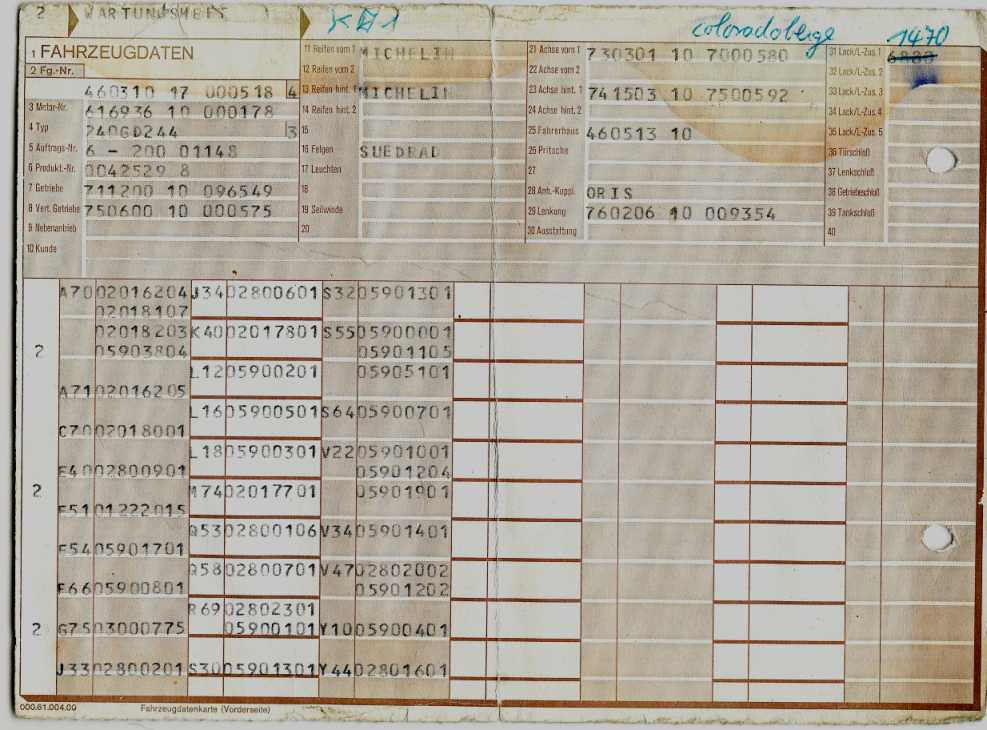 2 WARTUNGSHEFT K01 coloradobeige 1470
1 FAHRZEUGDATEN
2 Fg.-Nr. 460310 17 000518 4
3 Motor-Nr. 616936 10 000178
4 Typ 240GD244 3
5 Auftrags-Nr. 6 - 200 01148
6 Produkt.-Nr. 0042529 8
7 Getriebe 711200 10 096549
8 Vert. Getriebe 750600 10 000575
9 Nebenantrieb
10 Kunde
11 Reifen vorn 1 MICHELIN
12 Reifen vorn 2
13 Reifen hint. 1 MICHELIN
14 Reifen hint. 2
15
16 Felgen SUEDRAD
17 Leuchten
18
19 Seilwinde
20
21 Achse vorn 1 730301 10 7000580
22 Achse vorn 2
23 Achse hint. 1 741503 10 7500592
24 Achse hint. 2
25 Fahrerhaus 460513 10
26 Pritsche
27
28 Anh.-Kuppl. ORIS
29 Lenkung 760206 10 009354
30 Ausstattung
31 Lack/L-Zus. 1
32 Lack/L-Zus. 2
33 Lack/L-Zus. 3
34 Lack/L-Zus. 4
35 Lack/L-Zus. 5
36 Türschloß
37 Lenkschloß
38 Getriebeschloß
39 Tankschloß
40
A70 02016204 J34 02800601 S32 05901301
02018107
02018203 K40 02017801 S55 05900001
2 05903804 05901105
L12 05900201 05905101
A71 02016205
L16 05900501 S64 05900701
C70 02018001
L18 05900301 V22 05901001
E40 02800901 05901204
2 M74 02017701 05901901
E51 01222015
Q53 02800106 V34 05901401
E54 05901701
Q58 02800701 V47 02802002
E66 05900801 05901202
R69 02802301
2 G75 03000775 05900101 Y10 05900401
J33 02800201 S30 05901301 Y44 02801601
000.61.004.00 Fahrzeugdatenkarte (Vorderseite)